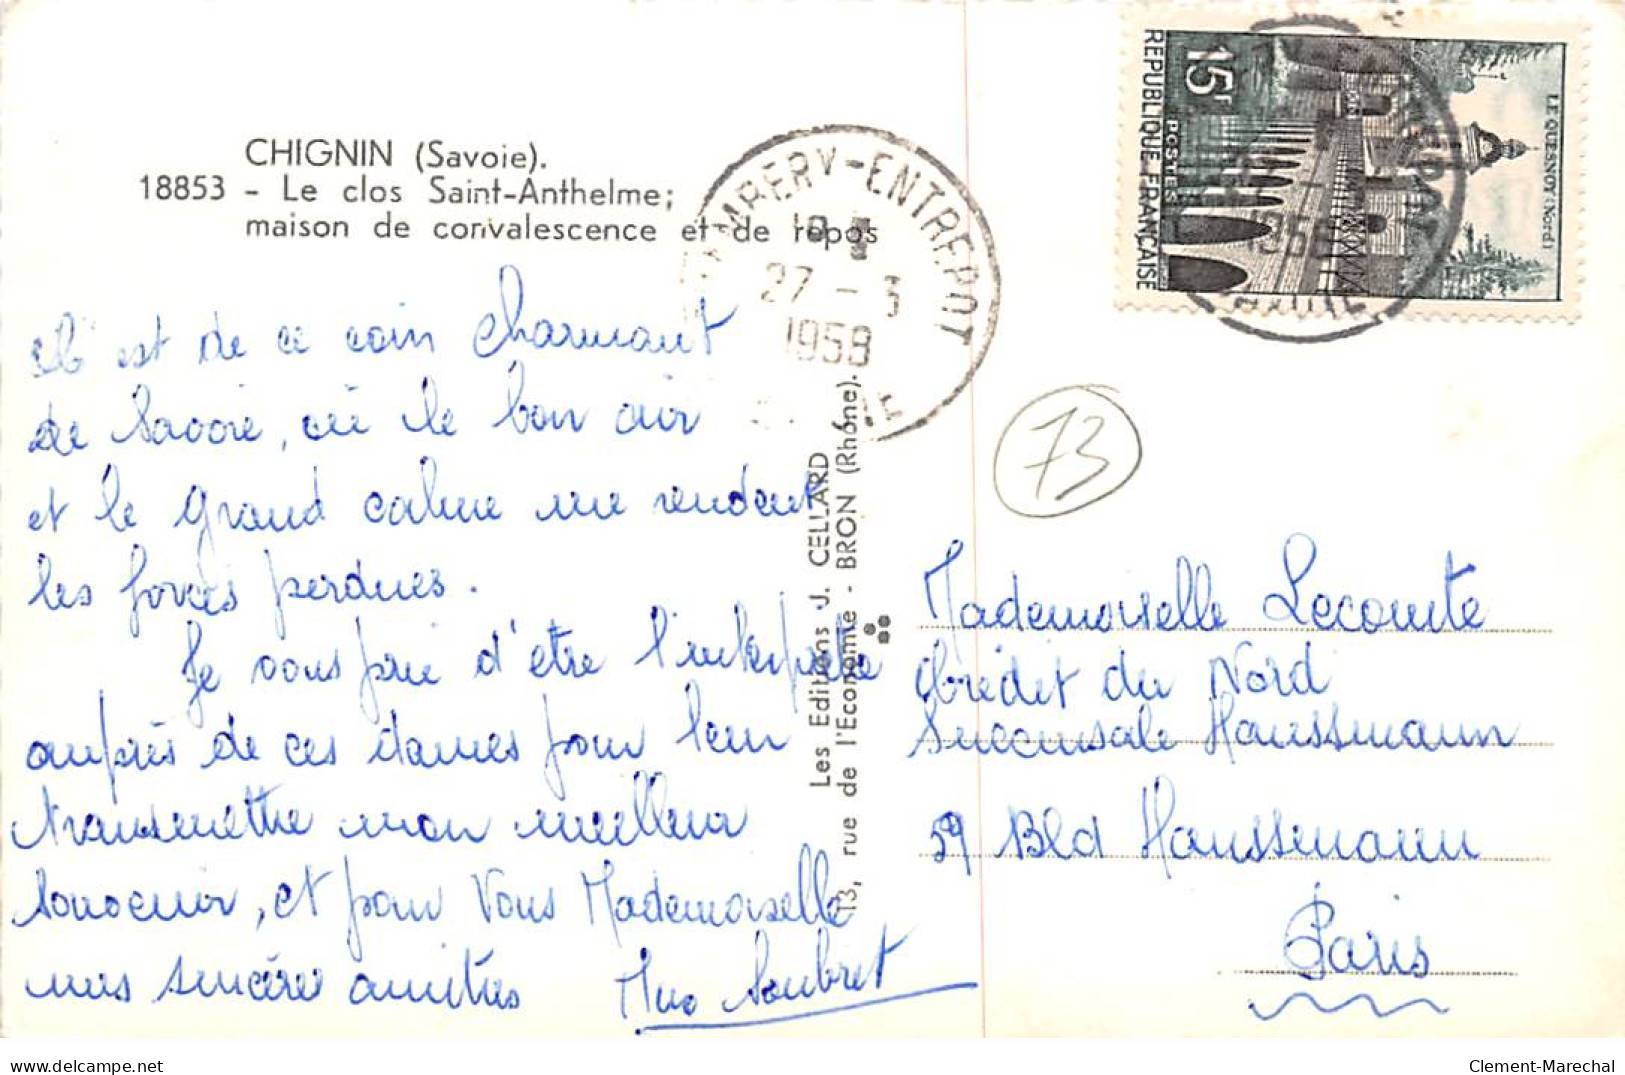 CHIGNIN (Savoie).
18853 - Le clos Saint-Anthelme;
maison de convalescence et de repos
CHAMBERY-ENTREPOT
18
27-3
1958
SAVOIE
REPUBLIQUE FRANÇAISE
15F
POSTES
LE QUESNOY (Nord)
CHAMBERY-ENTREPOT
1958
SAVOIE
73
C'est de ce coin charmant
de Savoie, où le bon air
et le grand calme me rendent
les forces perdues.
Je vous prie d'être l'interprète
auprès de ces dames pour leur
transmettre mon meilleur
souvenir, et pour Vous Mademoiselle
mes sincères amitiés Mme Soubret
Les Editions J. CELLARD
13, rue de l'Economie - BRON (Rhône).
Mademoiselle Lecomte
Crédit du Nord
Succursale Haussmann
59 Bld Haussmann
Paris
www.delcampe.net
Clement-Marechal